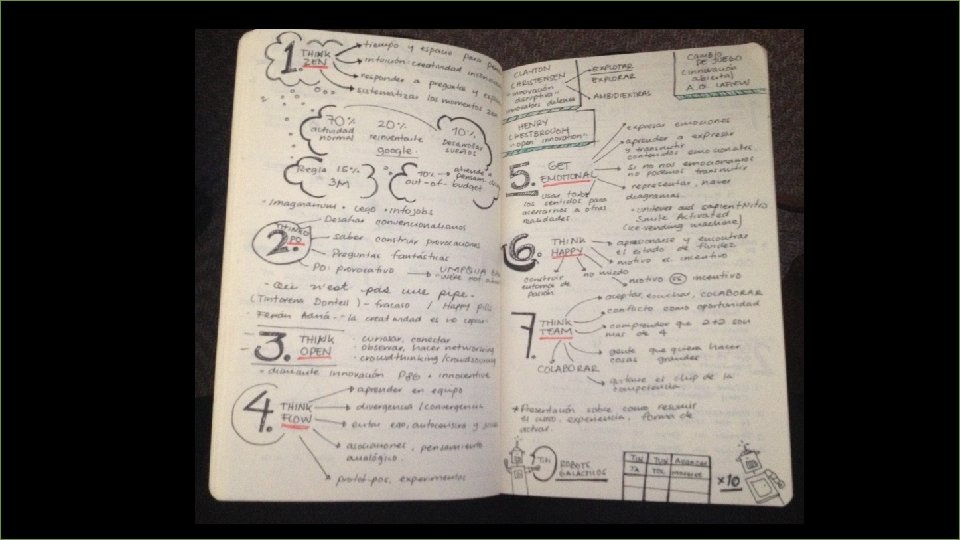 1. THINK ZEN
tiempo y espacio para
intuición creatividad
responder a preguntas y
sistematizar los momentos zen
70% actividad normal
20% reinventarte google.
10% Desarrollar sueños
Regla 15% 3M
70% out-of-budget
• Imaginarium • Lego • Infojobs
2. THINK PO
Desafiar convencionalismos
saber construir provocaciones
Preguntas fantásticas
PO: provocativo → UMPQUA
- Ceci n'est pas une pipe.
- fracaso / Happy pills
- Ferran Adrià - "la creatividad es no copiar"
3. THINK OPEN
• curiosear, conectar
• observar, hacer networking
• crowdthinking / crowdsourcing
• diamante innovación P&G + innocentive
4. THINK FLOW
aprender en equipo
divergencia / convergencia
evitar ego, autocensura y
asociaciones, pensamiento
analógico.
prototipos, experimentos
CLAYTON
CHRISTENSEN
"innovación
disruptiva"
EXPLOTAR
EXPLORAR
AMBIDIEXTRAS
CAMBIO
DE JUEGO
(innovación
abierta)
A. G. LAFLEY
HENRY
CHESTBROUGH
"open innovation"
5. GET EMOTIONAL
expresar emociones
aprender a expresar
y transmitir
contenidos emocionales.
si no nos emocionamos
no podemos transmitir
representar, hacer
diagramas.
usar todos
los sentidos para
acercarnos a otras
realidades.
• Unilever and SapientNitro
Smile Activated
(ice vending machine)
6. THINK HAPPY
apasionarse y encontrar
el estado de fluidez
motivo vs incentivo
motivo vs incentivo
no miedo
construir
entornos de
pasión
7. THINK TEAM
aceptar, escuchar, COLABORAR
conflicto como oportunidad
comprender que 2+2 son
más de 4
gente que quiera hacer
cosas grandes
COLABORAR
quitarse el chip de la
competencia.
* Presentación sobre como resumir
el curso, experiencia, forma de
actuar.
TIN
ROBOTS
GALÁCTICOS
TIN TIN AVANZAR
TA
×10